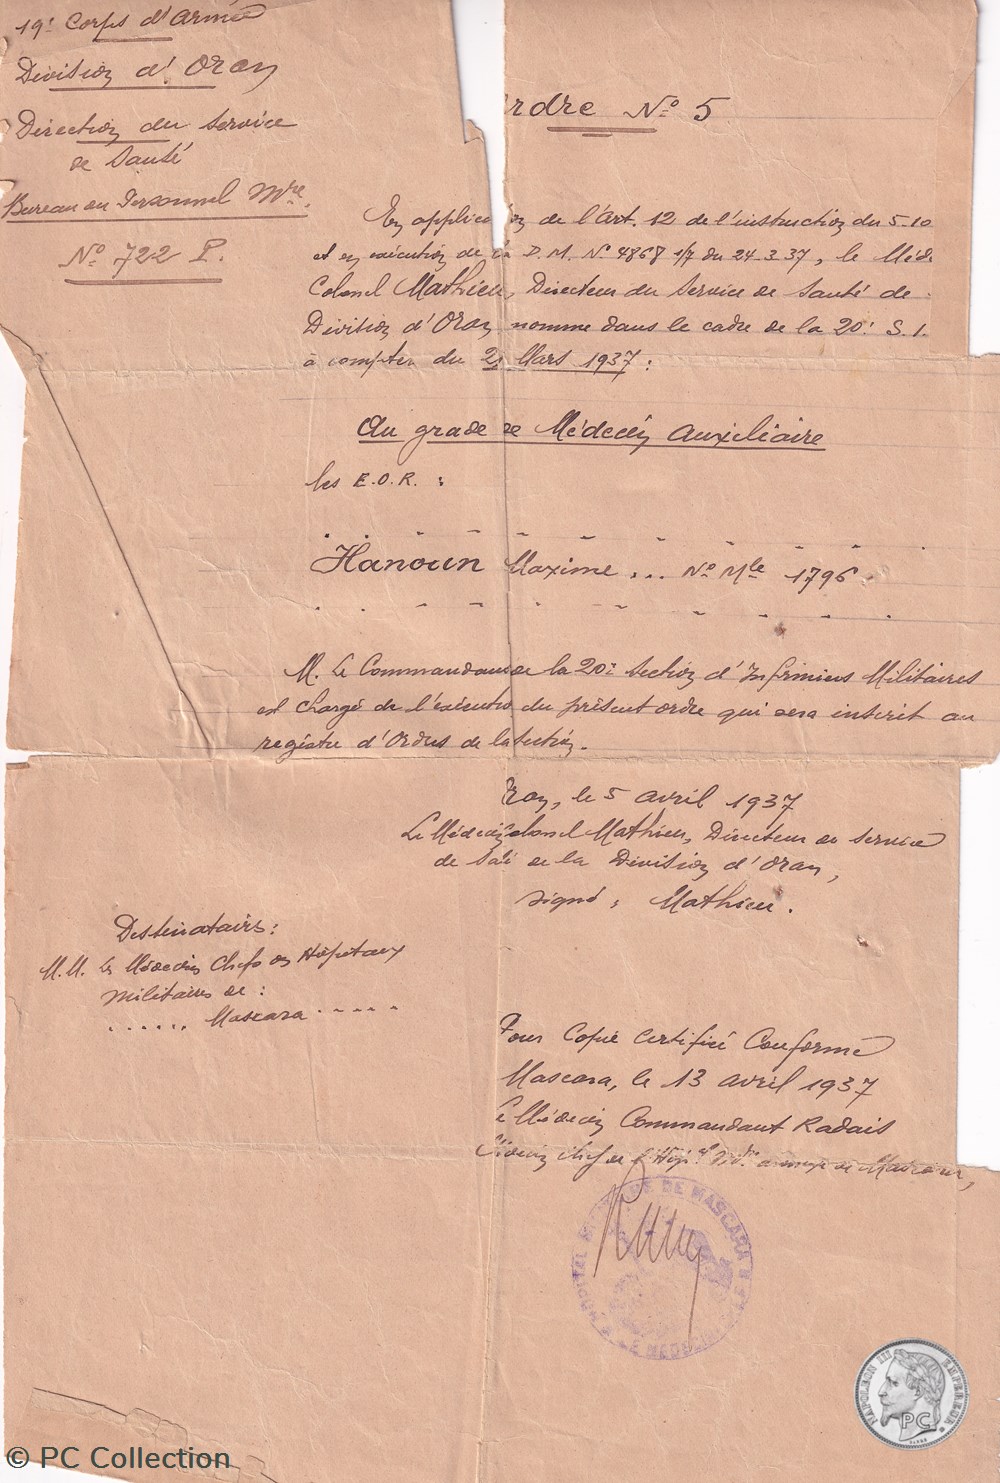 19e Corps d'Armée
Division d'Oran
Direction du Service
de Santé
Bureau du Personnel Mre.
No 722 P.
rdre No 5
En applica ion de l'Art. 12 de l'instruction du 5-10
et en exécution de la D.M. No 4868 1/7 du 24.3.37, le Méde
Colonel Mathieu, Directeur du Service de Santé de
Division d'Oran nomme dans le cadre de la 20e S.I.
à compter du Mars 1937 :
Au grade de Médecin Auxiliaire
les E.O.R. :
Hanoun Maxime ... No Mle 1796.
M. Le Commandant de la 20e Section d'Infirmiers Militaires
est chargé de l'exécution du présent ordre qui sera inscrit au
registre d'Ordres de la Section.
ran, le 5 avril 1937
Le Médecin Colonel Mathieu, Directeur du Service
de la Division d'Oran,
signé : Mathieu.
Destinataires :
M.M. les Médecins Chefs des Hôpitaux
Militaires de :
...... Mascara .....
Pour Copie Certifiée Conforme
Mascara, le 13 avril 1937
Le Médecin Commandant Radais
Médecin Chef de l'Hôp. annexe de Mascara,
HOPITAL ANNEXE DE MASCARA
LE MEDECIN
NAPOLEON III EMPEREUR
PC
BARRE
© PC Collection